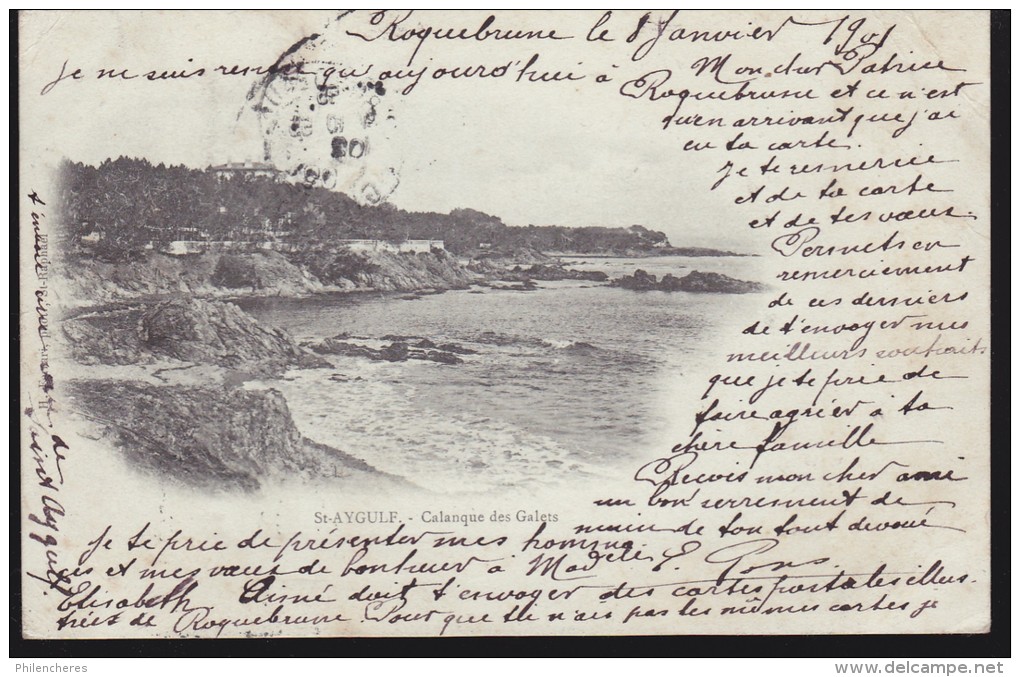 Roquebrune le 8 Janvier 1901
Mon cher Patrice
Je ne suis rentré qu'aujourd'hui à
Roquebrune et ce n'est
qu'en arrivant que j'ai
eu ta carte.
Je te remercie
et de ta carte
et de tes vœux.
Permets en
remerciement
de ces derniers
de t'envoyer mes
meilleurs souhaits
que je te prie de
faire agréer à ta
chère famille
Reçois mon cher ami
un bon serrement de
main de ton tout dévoué
E. Pons
St-AYGULF. - Calanque des Galets
Je te prie de présenter mes homma-
ges et mes vœux de bonheur à Madelle
Elisabeth. Aimé doit t'envoyer des cartes postales illus-
trées de Roquebrune. Pour que tu n'ais pas les mêmes cartes je
t'envoie une vue de
Saint Aygulf.
Philencheres
www.delcampe.net